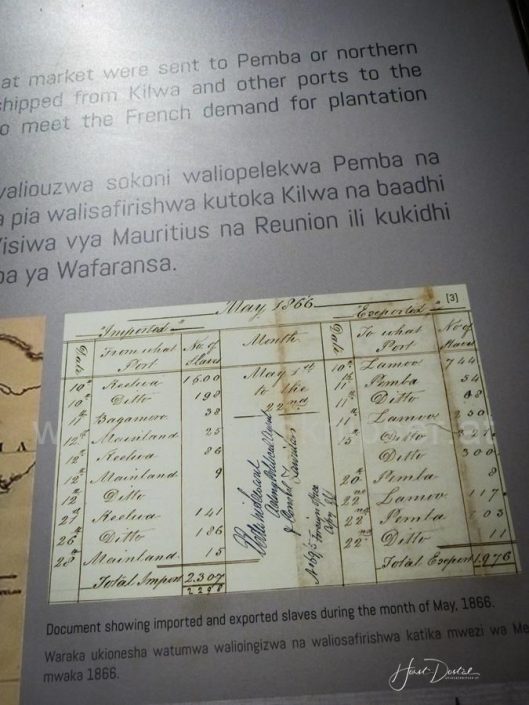 at market were sent to Pemba or northern
shipped from Kilwa and other ports to the
o meet the French demand for plantation
valiouzwa sokoni waliopelekwa Pemba na
a pia walisafirishwa kutoka Kilwa na baadhi
Visiwa vya Mauritius na Reunion ili kukidhi
ba ya Wafaransa.
[3]
May 1866
Imported Exported
Date From what Port No. of Slaves Month Date To what Port No of Slaves
10th Keelwa 1500 May 1st to the 22nd 10th Lamoo 744
10th Ditto 198 11th Pemba 54
11th Bagamoro 38 11th Ditto
12th Mainland 25 11th Lamoo
12th Keelwa 86 15th Ditto
12th Mainland 9 Ditto 300
12th Ditto 20th Pemba 8
27th Keelwa 141 22nd Lamoo 117
26th Ditto 186 22nd Pemba 03
28th Mainland 15 22nd Ditto 11
Total Import 2307 Total Export 1976
2298
Document showing imported and exported slaves during the month of May, 1866.
Waraka ukionesha watumwa walioingizwa na waliosafirishwa katika mwezi wa Me
mwaka 1866.